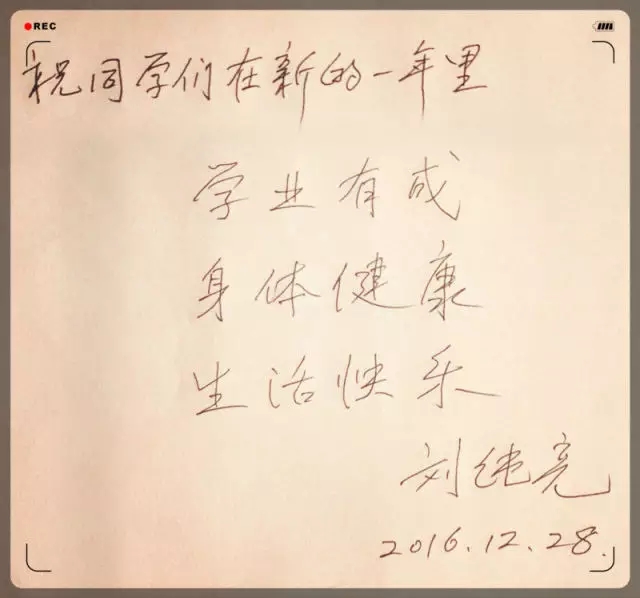 REC
祝同学们在新的一年里
学业有成
身体健康
生活快乐
刘继亮
2016.12.28.